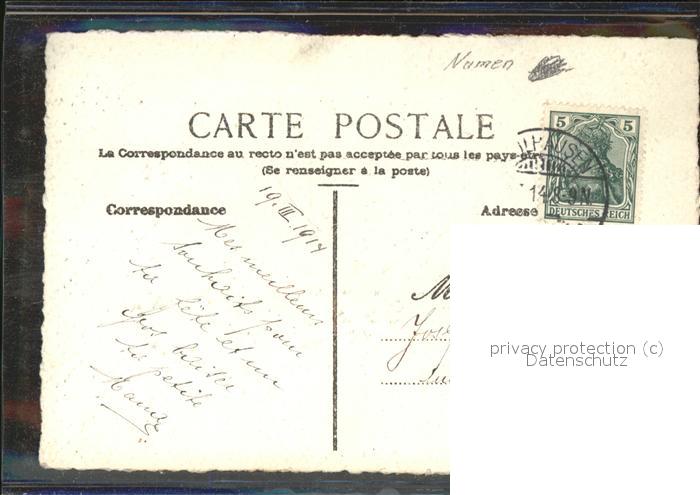 Namen
CARTE POSTALE
La Correspondance au recto n'est pas acceptée par tous les pays
(Se renseigner à la poste)
Correspondance
Adresse
5 5
DEUTSCHES REICH
19. III. 1914
Mes meilleurs
souhaits pour
ta fête et un
gros baiser
ta petite
privacy protection (c)
Datenschutz